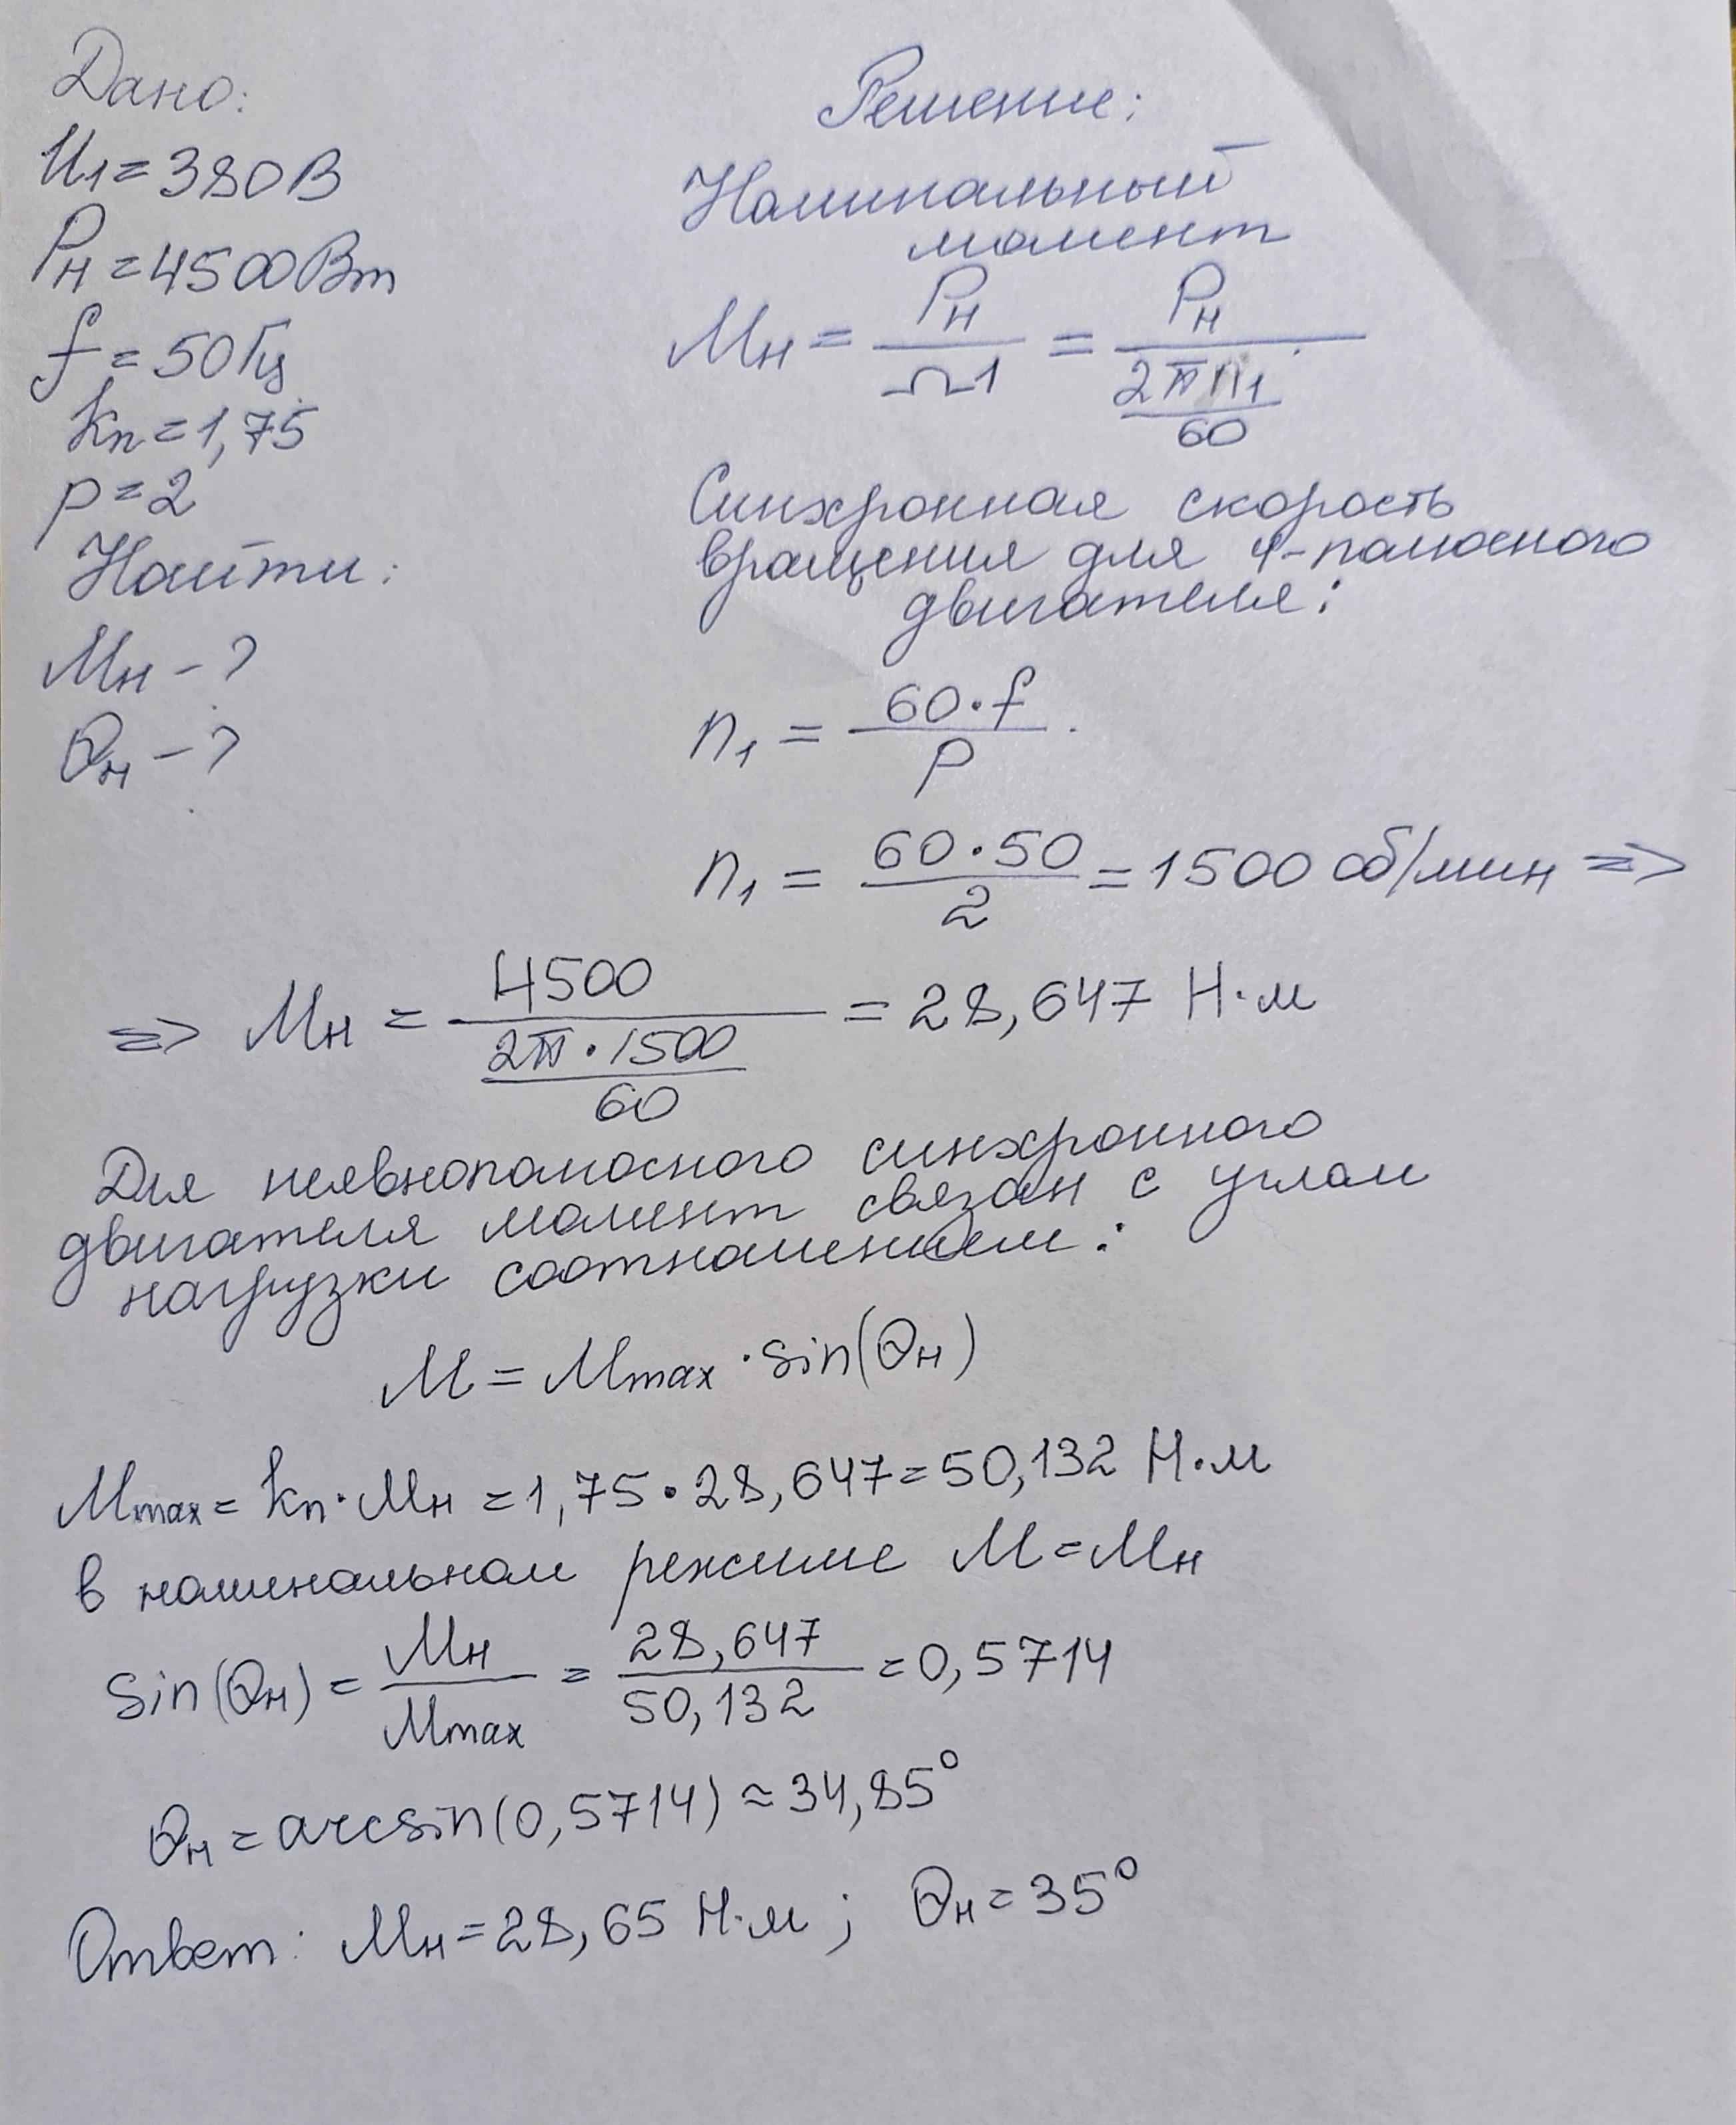 Дано:
U1 = 380 В
Pн = 4500 Вт
f = 50 Гц
kп = 1,75
p = 2
Найти:
Mн - ?
Θн - ?
Решение:
Номинальный
момент
Mн = Pн / Ω1 = Pн / (2πn1 / 60)
Синхронная скорость
вращения для 4-полюсного
двигателя:
n1 = 60·f / p
n1 = 60·50 / 2 = 1500 об/мин =>
=> Mн = 4500 / (2π·1500 / 60) = 28,647 Н·м
Для неявнополюсного синхронного
двигателя момент связан с углом
нагрузки соотношением:
M = Mmax · sin(Θн)
Mmax = kп · Mн = 1,75 · 28,647 = 50,132 Н·м
в номинальном режиме M = Mн
sin(Θн) = Mн / Mmax = 28,647 / 50,132 = 0,5714
Θн = arcsin(0,5714) ≈ 34,85°
Ответ: Mн = 28,65 Н·м; Θн = 35°